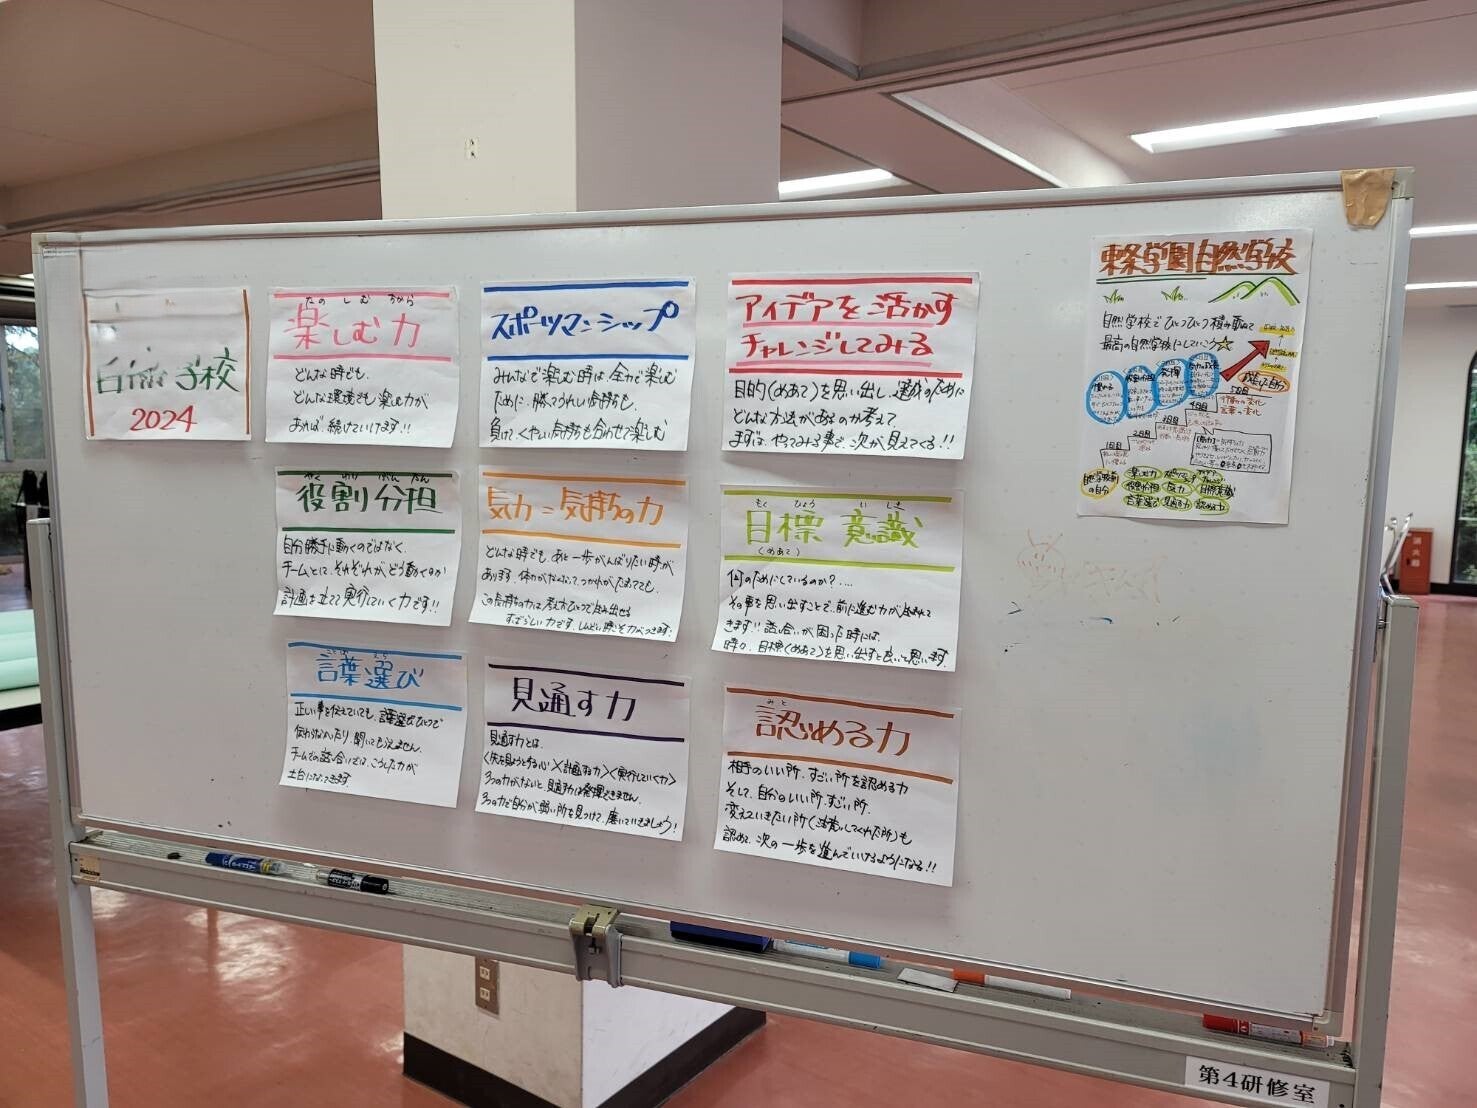 学校
2024
たの しむ ちから
楽しむ力
どんな時でも、
どんな環境でも楽しむ力が
あれば、続けていけます!!
スポーツマンシップ
みんなで楽しむ時は、全力で楽しむ
ために、勝てうれしい気持ちも、
負けて、くやしい気持ちも合わせて楽しむ
アイデアを活かす
チャレンジしてみる
目的(めあて)を思い出し、達成のために
どんな方法があるのか考えて、
まずは、やってみる事で、次が見えてくる!!
やく わり ぶん たん
役割分担
自分勝手に動くのではなく、
チームとして、それぞれが、どう動くのか
計画を立てて実行していく力です!!
気力=気持ちの力
どんな時でも、あと一歩がんばりたい時が
あります。体力がなくなって、つかれがたまってても、
この気持ちの力は、考え方ひとつで生み出せる
すばらしい力です。しんどい時こそ力がつきます!
もく ひょう い しき
目標意識
(めあて)
何のためにしているのか?....
その事を思い出すことで、前に進む力が生まれて
きます!!話し合いが困った時には、
時々、目標(めあて)を思い出すと良いと思います。
ことば えら
言葉選び
正しい事を伝えていても、言葉選びひとつで
伝わらなかったり、聞いてもらえません。
チームでの話し合いでは、こうした力が
土台になってきます。
見通す力
見通す力とは、
<先を見ようとする心>×<計画する力><実行していく力>
3つの力がないと、見通す力は発揮できません。
3つの力で自分が弱い所を見つけて、磨いていきましょう!
みと
認める力
相手のいい所、すごい所を認める力
そして、自分のいい所、すごい所、
変えていきたい所(注意してくれた所)も
認めて、次の一歩を進んでいけるようになる!!
東条学園自然学校
自然学校でひとつひとつ積み重ねて
最高の自然学校にしていこう☆
成長した自分
5日目
行動の変化
言葉の変化
4日目
3日目
2日目
1日目
自然学校前
の自分
楽しむ力
役割分担
気力
目標意識
言葉選び
見通す力
認める力
消火器
第4研修室